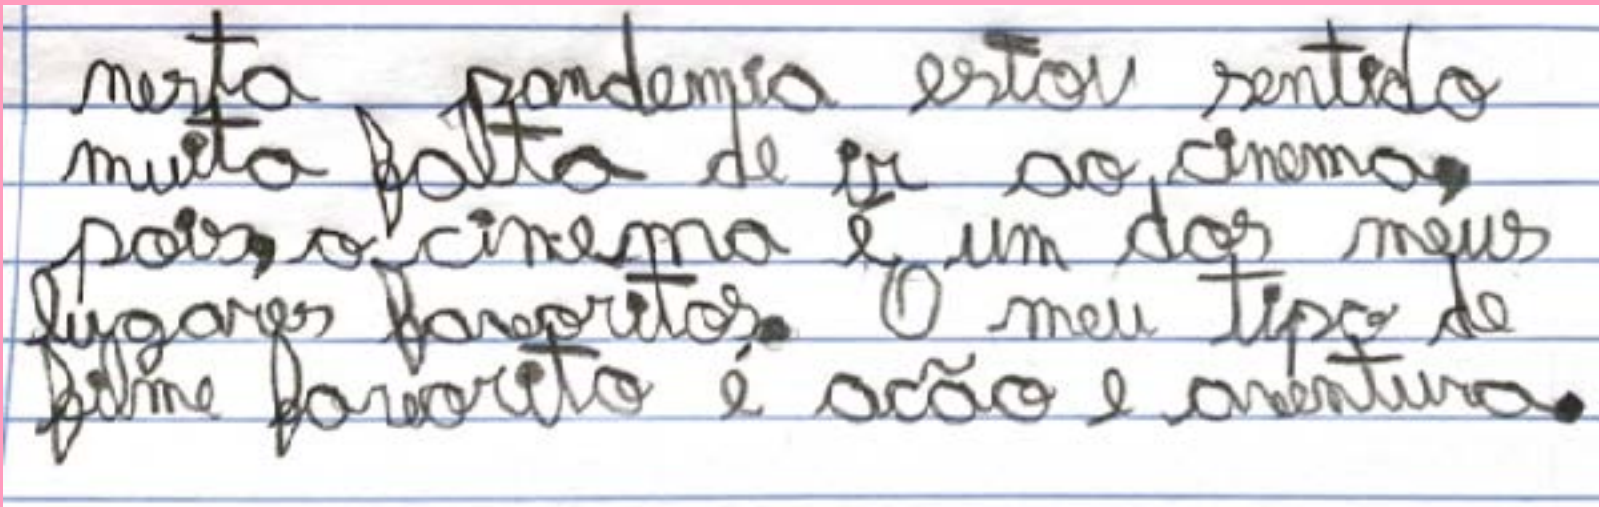 nesta pandemia estou sentido
muita falta de ir ao cinema,
pois, o cinema é um dos meus
lugares favoritos. O meu tipo de
filme favorito é acão e aventura.